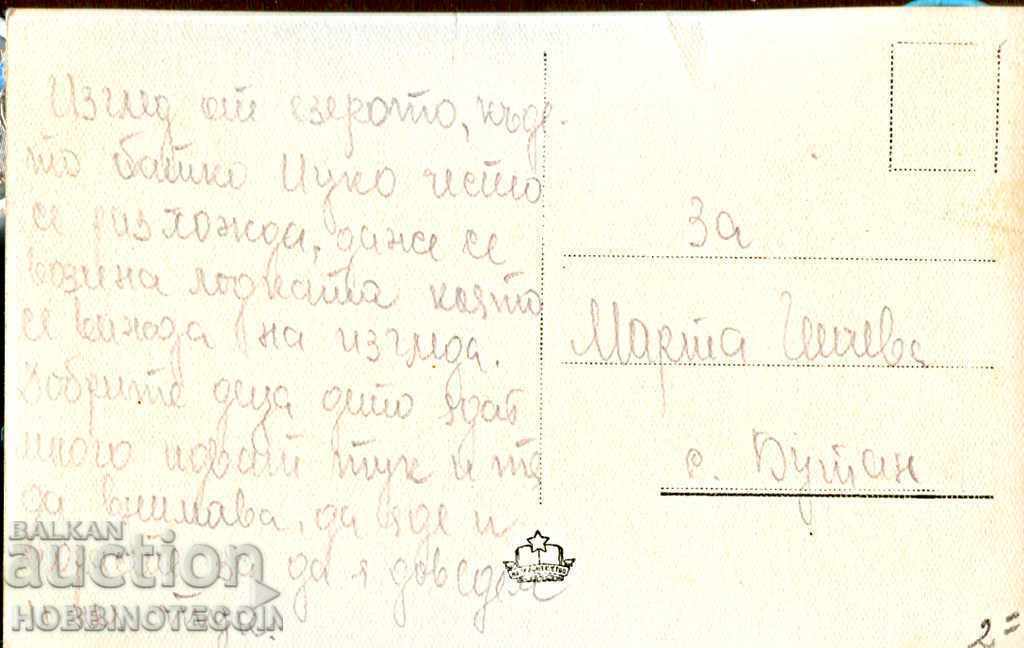 Изглед от езерото, къде-
то батко Цуко често
се разхожда, даже се
вози на лодката която
се вижда на изгледа.
Добрите деца дето ядат
много идват тук и тя
да внимава, да яде и
да я доведем
За
Марта
с. Бутан
BALKAN
auction
HOBBINOTECON
2=